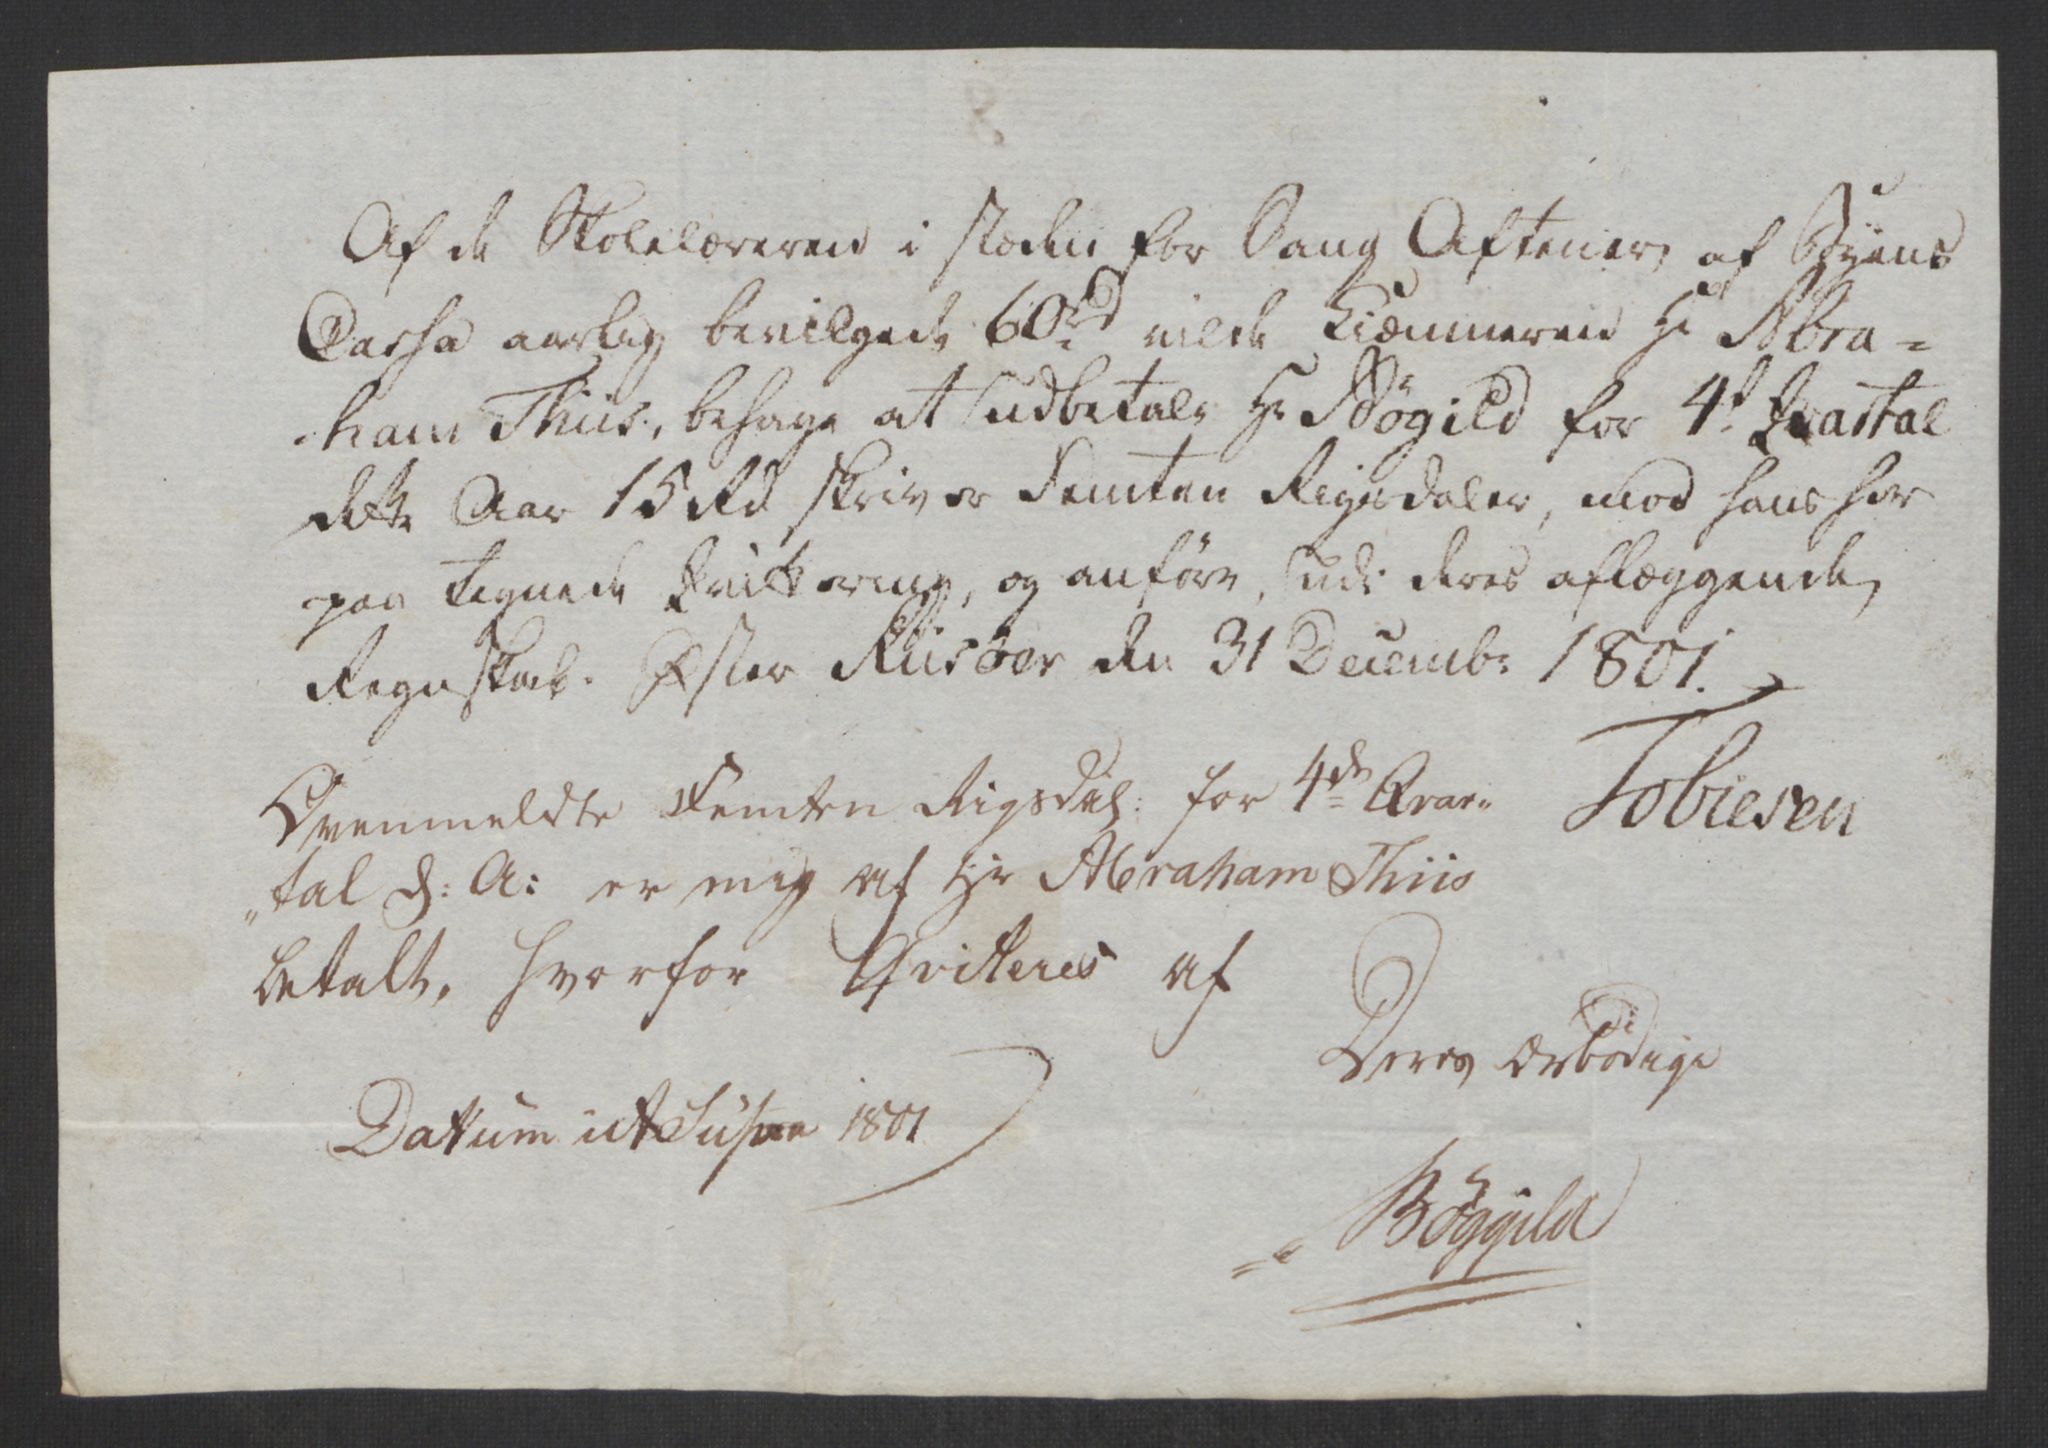 Af de Skolelæreren i stæden for Sang Aftener, af Byens
Cassa aarlig bevilgede 60rd vilde Kiæmneren Hr Abra-
ham Thiis, behage at udbetale Hr Bøgild for 4d Qvartal
dette Aar 15 Rd skriver Femten Rigsdaler, mod hans her
paa tegnede Qvittering, og anføre udi deres aflæggende
Regnskab. Øster Riisøer den 31 Decembr 1801.
Tobiesen
Ovenmeldte Femten Rigsdlr: for 4de Qvar„
„tal d: A: er mig af Hr Abraham Thiis
betalt, hvorfor Qviteres af
Deres ærbødige
Datum ut Supra 1801
Bøggild